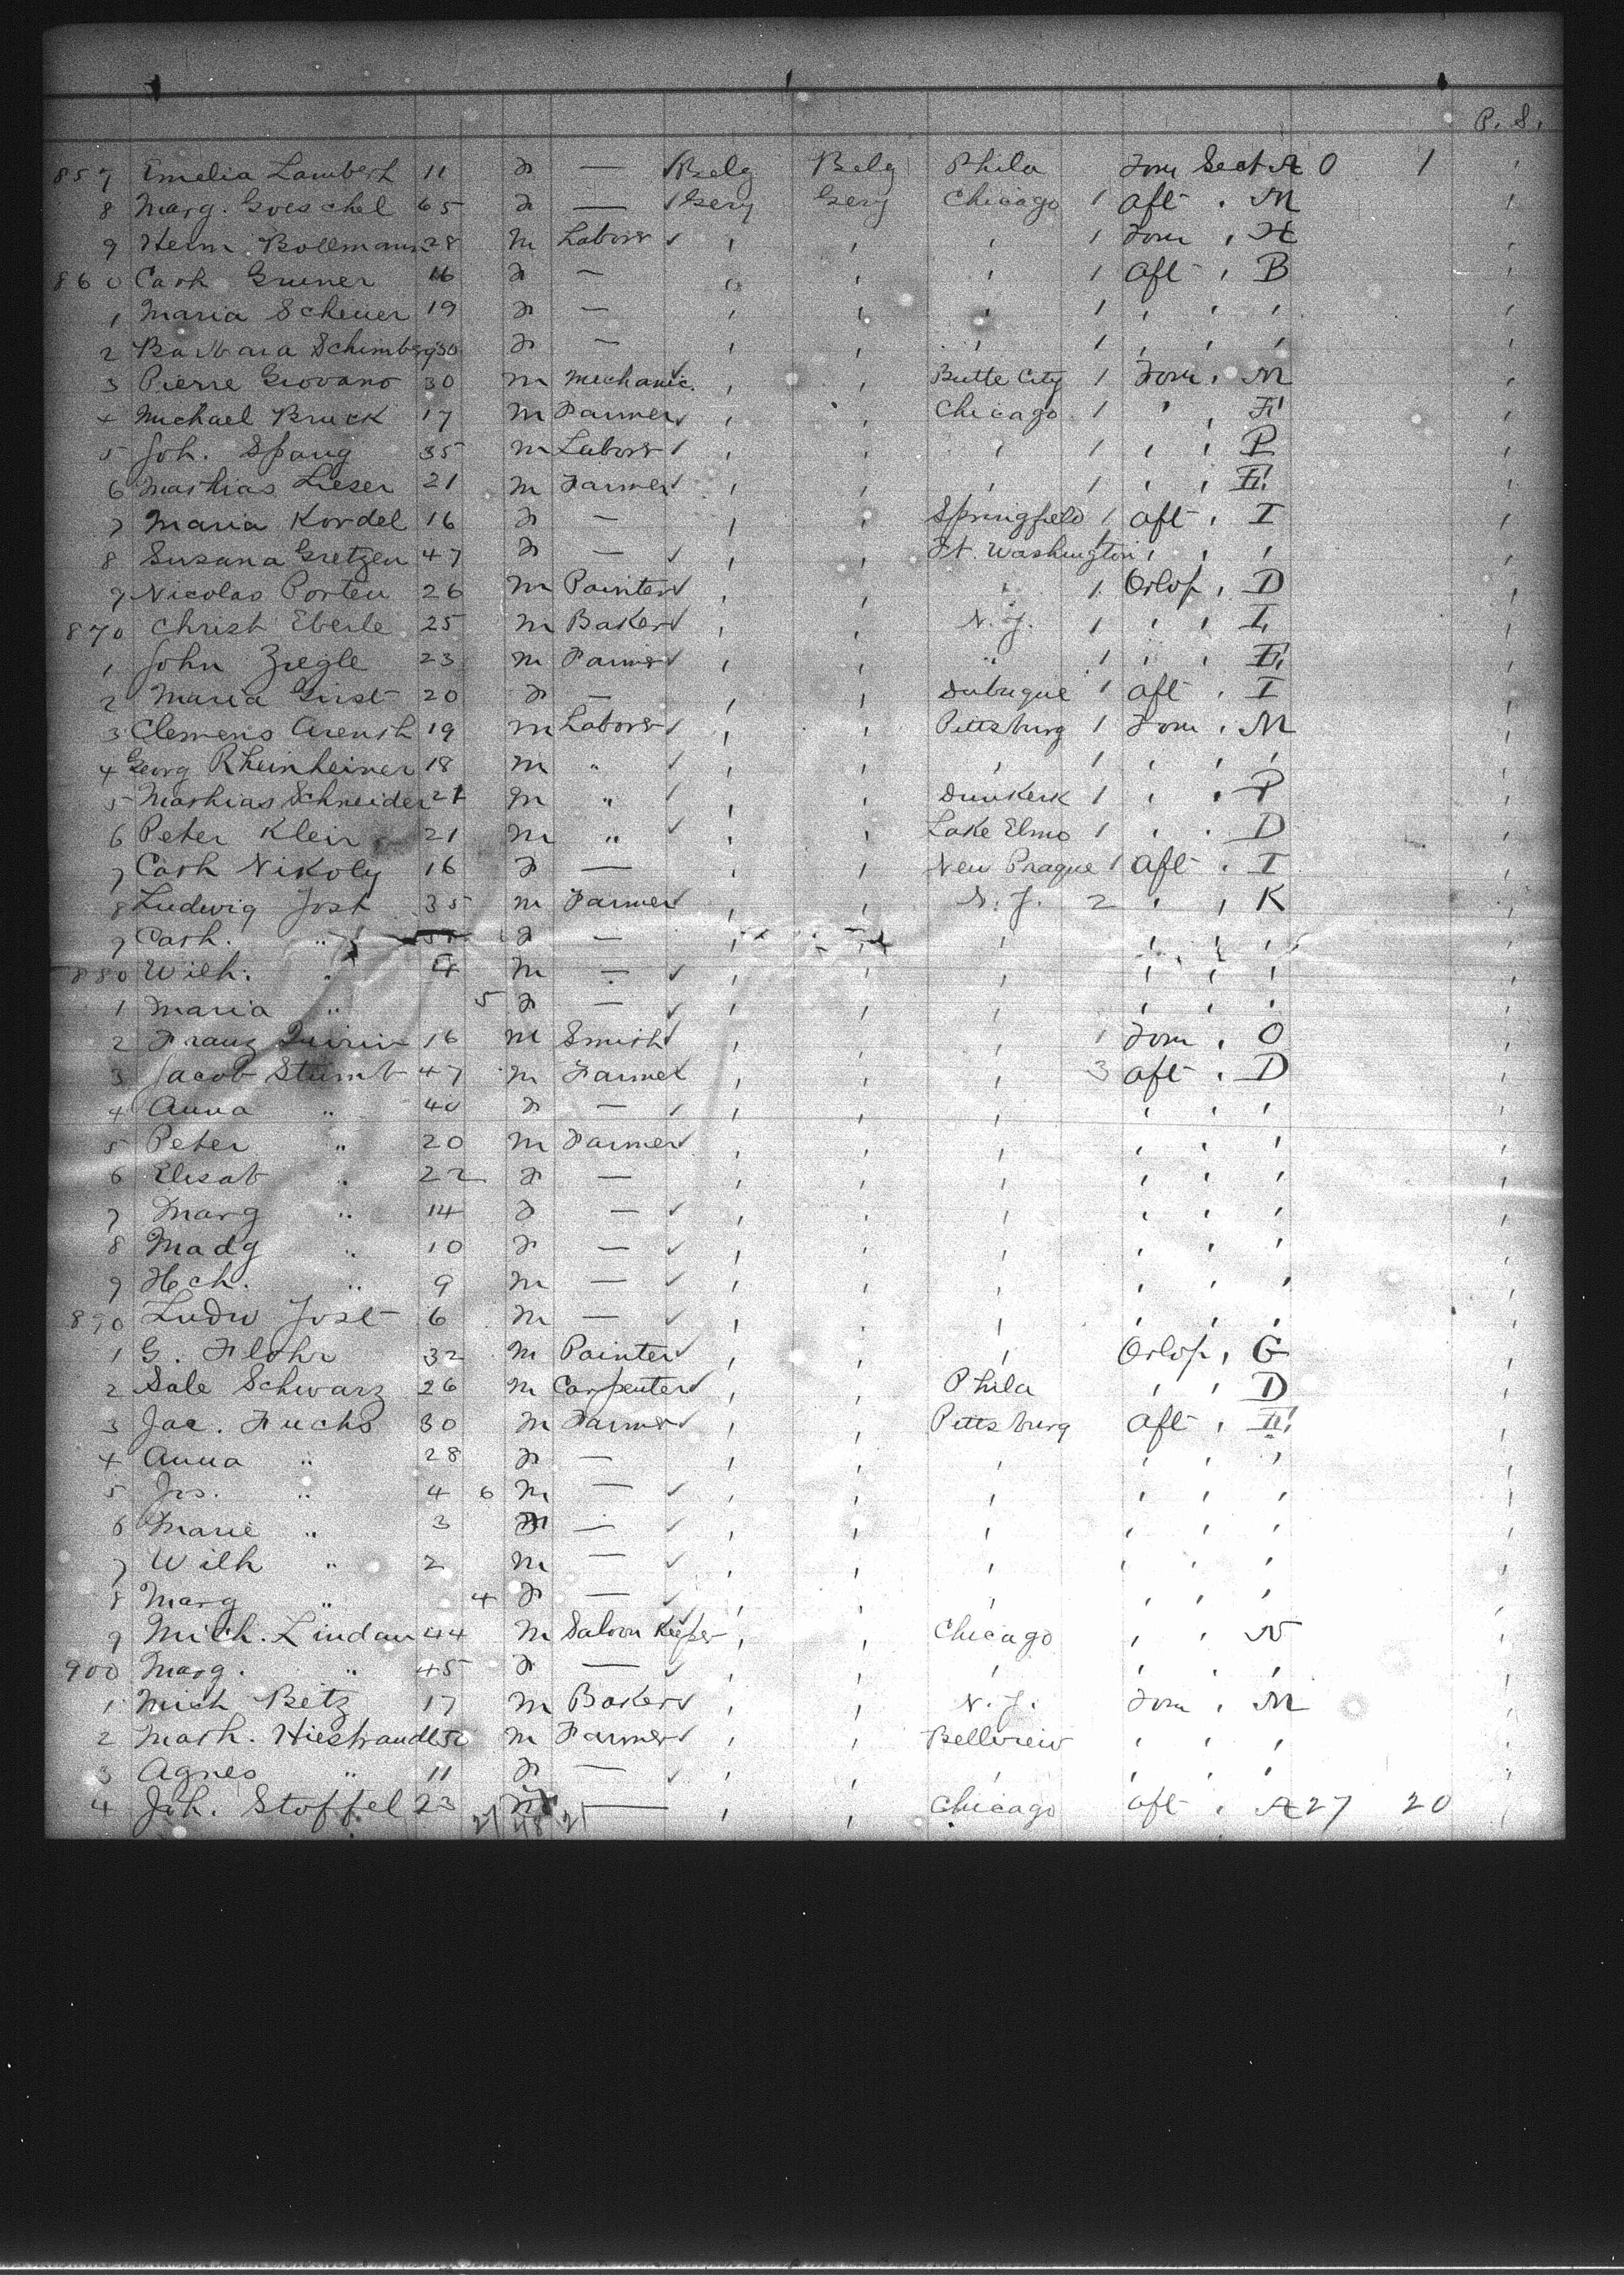 P. S.
857 Emelia Lambert 11 F — Belg Belg Phila Forw Sect A 0 1 '
8 Marg. Goeschel 65 F — ✓ Gery Gery Chicago 1 aft ' M '
9 Herm. Bollmann 28 M Labor ✓ ' ' ' 1 Forw ' H '
860 Cath Gruner 16 F — ' ' ' 1 aft ' B '
1 Maria Scheuer 19 F — ' ' ' 1 ' ' ' '
2 Barbara Schimberg 30 F — ' ' ' 1 ' ' ' '
3 Pierre Giovano 30 M Mechanic ✓ ' ' Butte City 1 Forw ' M '
4 Michael Bruck 17 M Farmer ✓ ' ' Chicago 1 ' ' '
5 Joh. Spang 35 M Labor ✓ ' ' ' 1 ' ' P '
6 Mathias Lieser 21 M Farmer ✓ ' ' ' 1 ' ' '
7 Maria Kordel 16 F — ' ' Springfield 1 aft ' I '
8 Susana Gretzen 47 F — ✓ ' ' Ft. Washington 1 ' ' ' '
9 Nicolas Porten 26 M Painter ✓ ' ' ' 1 Orlop ' D '
870 Christ Eberle 25 M Baker ✓ ' ' N. Y. 1 ' ' '
1 John Ziegle 23 M Farmer ✓ ' ' " 1 ' ' '
2 Maria Girst 20 F — ' ' Dubuque 1 aft ' I '
3 Clemens Arenth 19 M Labor ✓ ' ' Pittsburg 1 Forw ' M '
4 Georg Rheinheimer 18 M " ✓ ' ' ' 1 ' ' ' '
5 Mathias Schneider 21 M " ✓ ' ' Dunkerk 1 ' ' P '
6 Peter Klein 21 M " ✓ ' ' Lake Elmo 1 ' ' D '
7 Cath Nikoly 16 F — ' ' New Prague 1 aft ' I '
8 Ludwig Jost 35 M Farmer ✓ ' ' N. Y. 2 ' ' K '
9 Cath. " F — ' ' ' ' ' ' '
880 Wilh. " 4 M — ✓ ' ' ' ' ' ' '
1 Maria " 5 F — ✓ ' ' ' ' ' ' '
2 Franz Quirin 16 M Smith ✓ ' ' ' 1 Forw ' O '
3 Jacob Stumb 47 M Farmer ' ' ' 3 aft ' D '
4 Anna " 40 F — ✓ ' ' ' ' ' ' '
5 Peter " 20 M Farmer ✓ ' ' ' ' ' ' '
6 Elisab " 22 F — ' ' ' ' ' ' '
7 Marg " 14 F — ✓ ' ' ' ' ' ' '
8 Madg " 10 F — ✓ ' ' ' ' ' ' '
9 Hch. " 9 M — ✓ ' ' ' ' ' ' '
890 Ludw Jost 6 M — ✓ ' ' ' ' ' ' '
1 G. Flohr 32 M Painter ✓ ' ' ' Orlop ' G '
2 Sale Schwarz 26 M Carpenter ✓ ' ' Phila ' ' D '
3 Jac. Fuchs 30 M Farmer ✓ ' ' Pittsburg aft ' '
4 Anna " 28 F — ' ' ' ' ' ' '
5 Jos. " 4 6 M — ✓ ' ' ' ' ' ' '
6 Marie " 3 — ✓ ' ' ' ' ' ' '
7 Wilh " 2 M — ✓ ' ' ' ' ' ' '
8 Marg " 4 F — ✓ ' ' ' ' ' ' '
9 Mich. Lindau 44 M Saloon Keeper ' ' Chicago ' ' N '
900 Marg. " 45 F — ✓ ' ' ' ' ' ' '
1 Mich Betz 17 M Baker ✓ ' ' N. Y. Forw ' M '
2 Math. Hiestrandt 50 M Farmer ✓ ' ' Bellview ' ' ' '
3 Agnes " 11 F — ✓ ' ' ' ' ' ' '
4 Joh. Stoffel 23 M — ' ' Chicago aft ' A 27 20 '
21 48 21